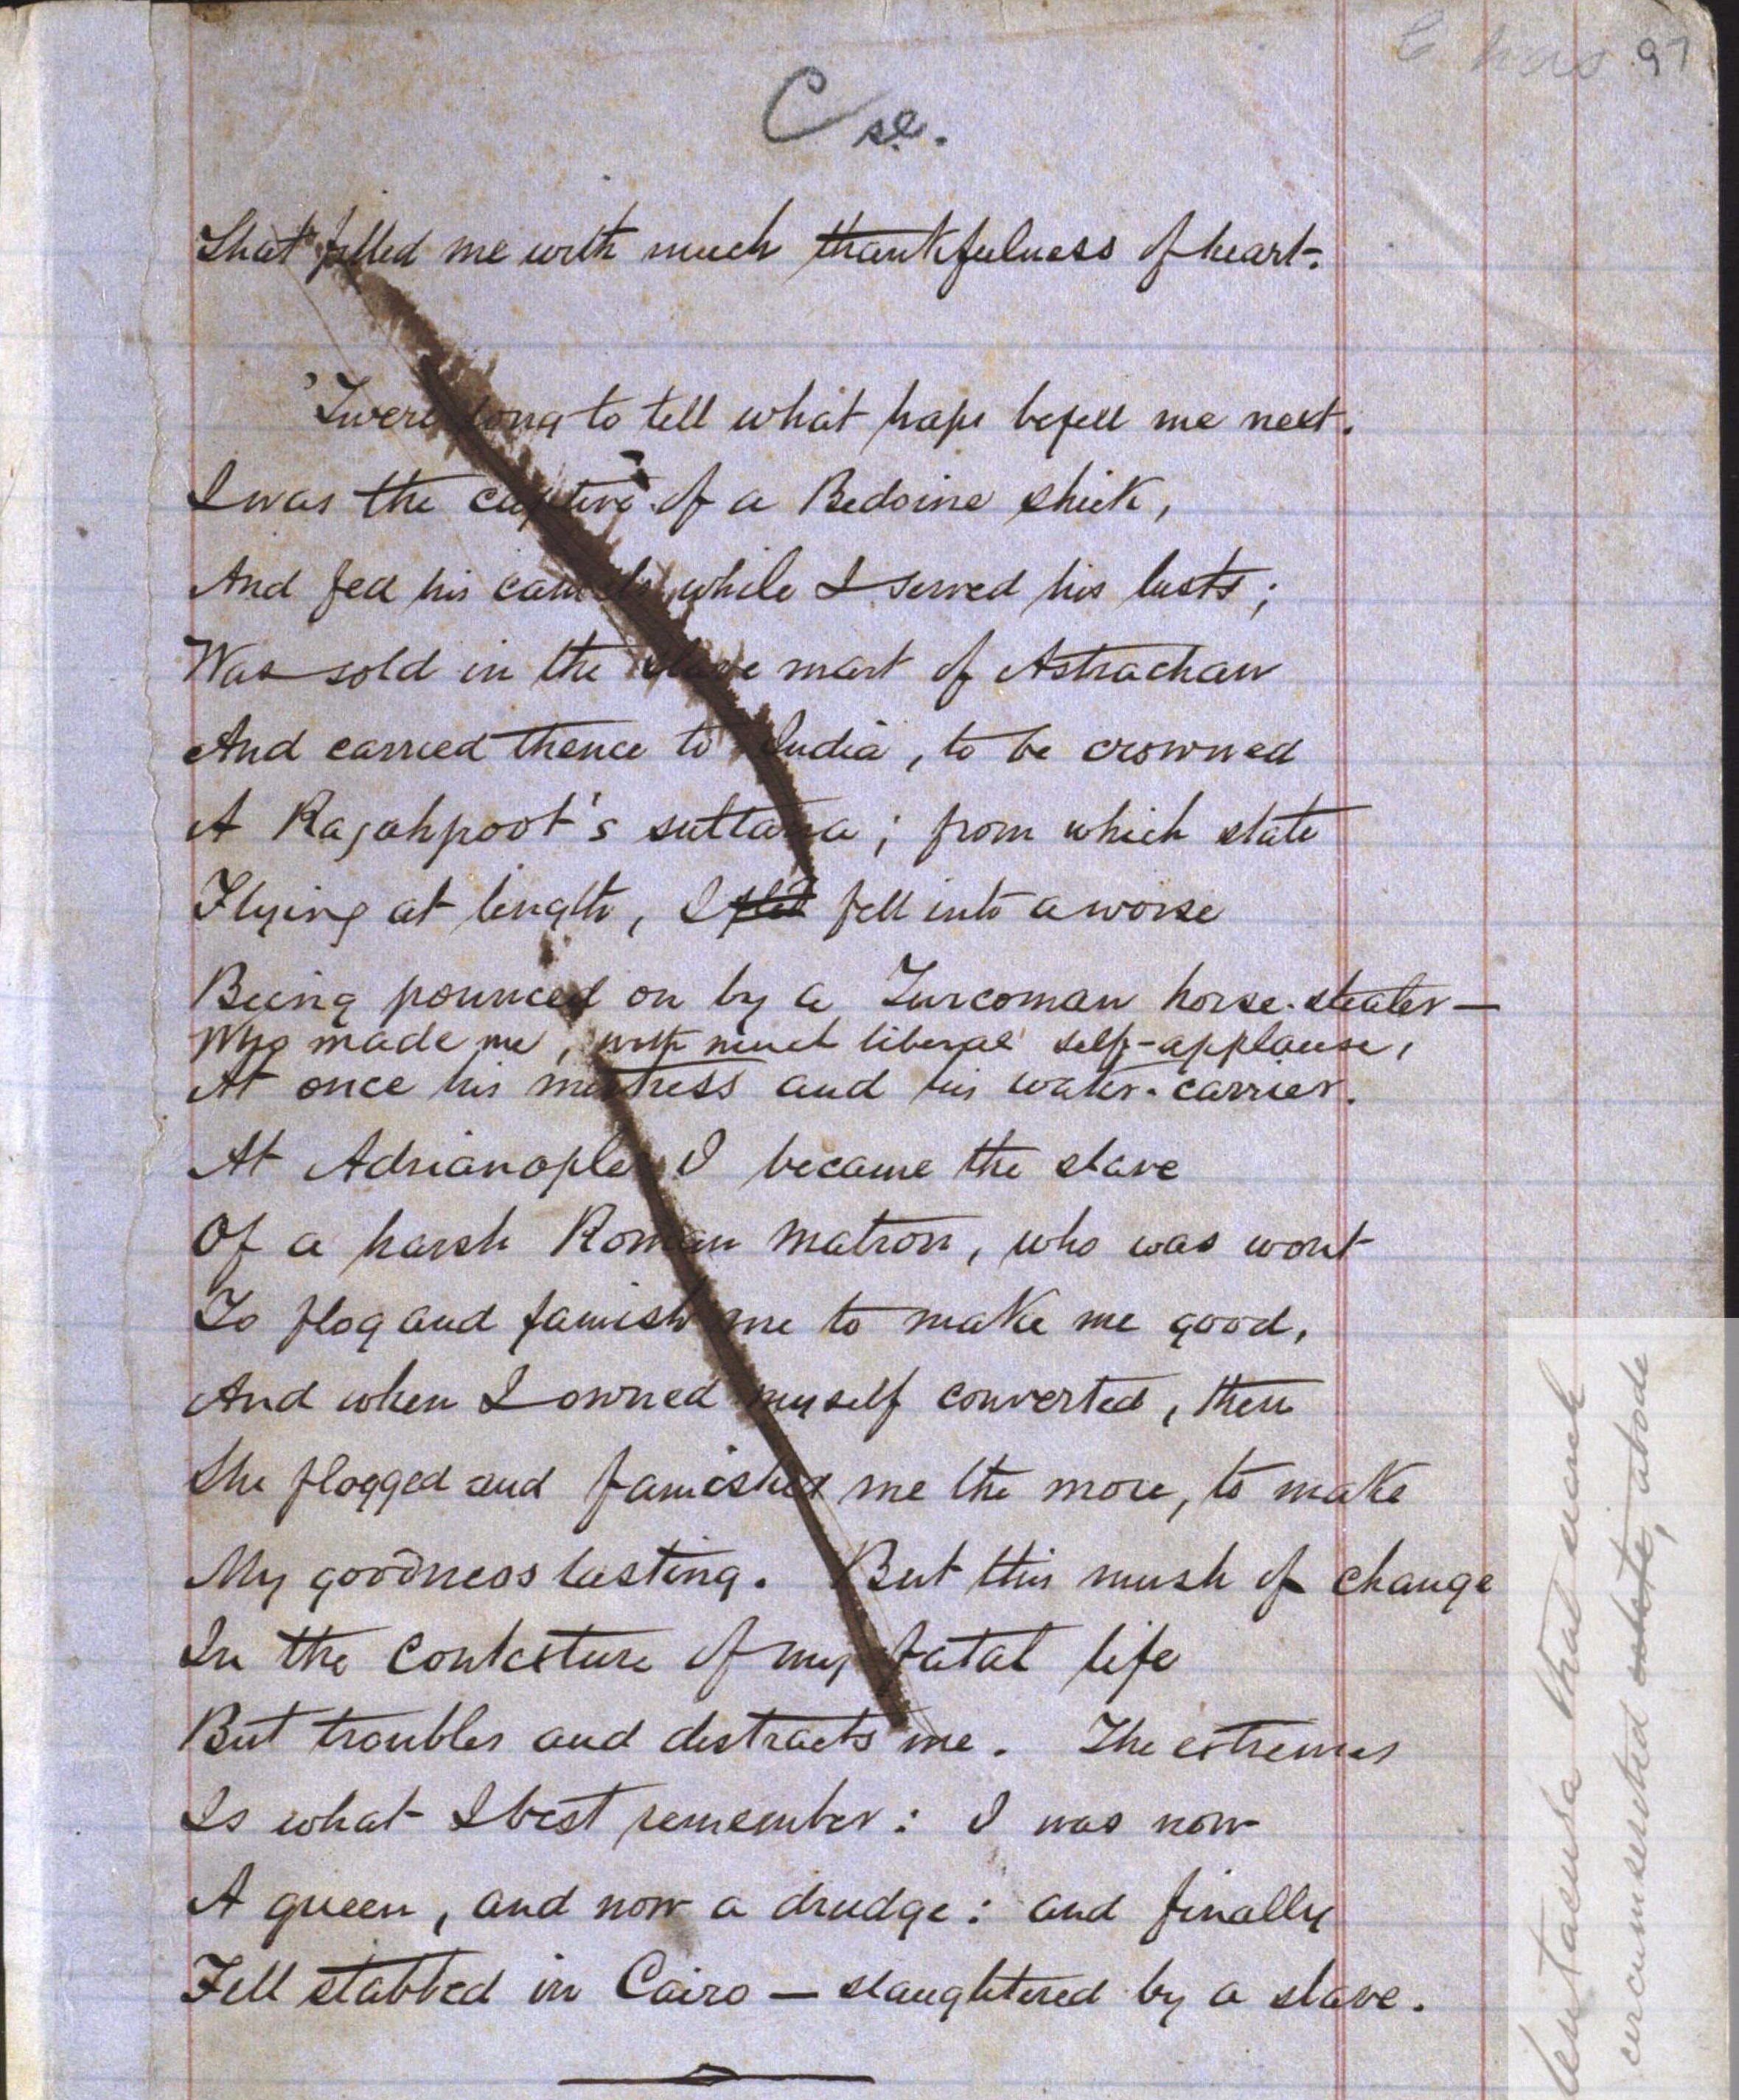 97
C se.
That filled me with much thankfulness of heart.
'Twere long to tell what haps befell me next.
I was the captive of a Bedoine shiek,
And fed his camels while I served his lusts;
Was sold in the slave mart of Astrachan
And carried thence to India, to be crowned
A Rajahpoot's sultana; from which state
Flying at length, I fell into a worse
Being pounced on by a Turcoman horse-stealer—
Who made me, with much liberal self-applause,
At once his mistress and his water-carrier.
At Adrianople I became the slave
Of a harsh Roman matron, who was wont
To flog and famish me to make me good,
And when I owned myself converted, then
She flogged and famished me the more, to make
My goodness lasting. But this mush of change
In the contexture of my fatal life
But troubles and distracts me. The extremes
Is what I best remember: I was now
A queen, and now a drudge: and finally
Fell stabbed in Cairo — slaughtered by a slave.
that such
circumscribed estate, abode